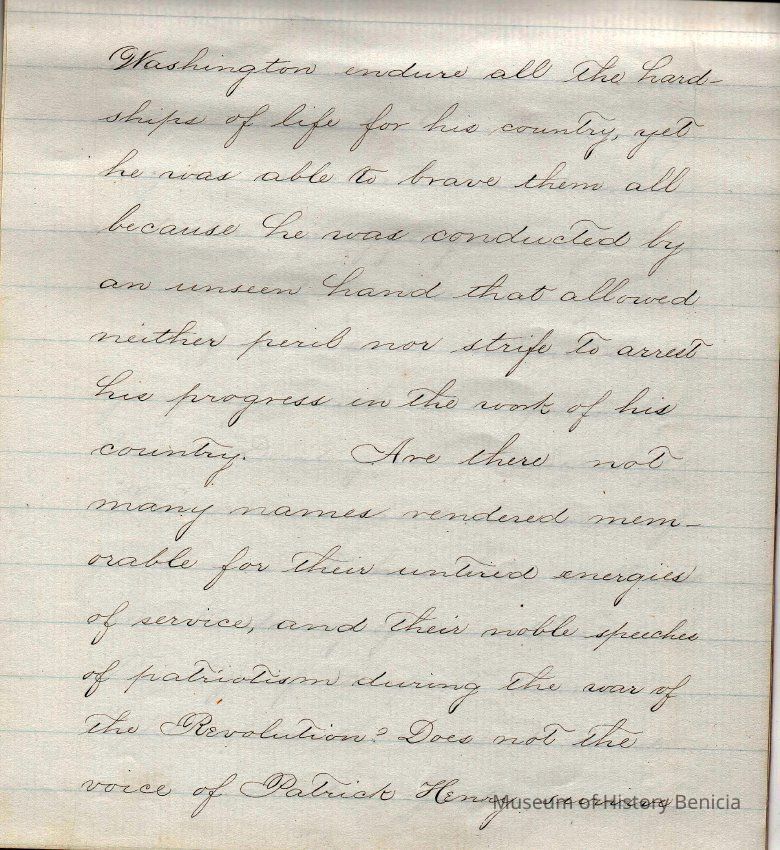 Washington endure all the hard-
ships of life for his country, yet
he was able to brave them all
because he was conducted by
an unseen hand that allowed
neither peril nor strife to arrest
his progress in the work of his
country. Are there not
many names rendered mem-
orable for their untired energies
of service, and their noble speeches
of patriotism during the war of
the Revolution? Does not the
voice of Patrick Henry
Museum of History Benicia